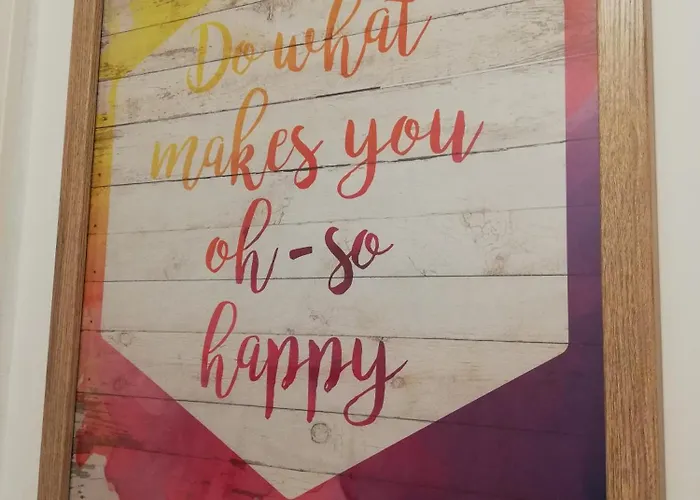 Do what
makes you
oh-so
happy